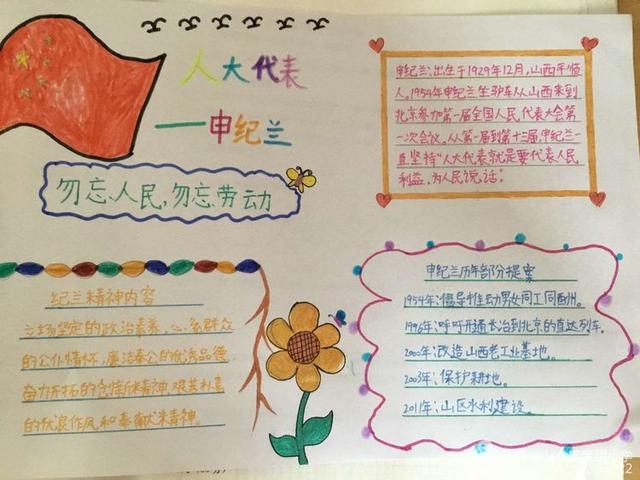 人大代表
——申纪兰
勿忘人民,勿忘劳动
申纪兰:出生于1929年12月,山西平顺
人。1954年申纪兰坐驴车从山西来到
北京参加第一届全国人民代表大会第
一次会议。从第一届到第十三届,申纪兰一
直坚持“人大代表就是要代表人民
利益,为人民说话”。
纪兰精神内容
立场坚定的政治素养,心系群众
的公仆情怀,廉洁奉公的优秀品德,
奋力开拓的创新精神,艰苦朴素
的优良作风和奉献精神。
申纪兰历年部分提案
1954年:倡导推动男女同工同酬。
1996年:呼吁开通长治到北京的直达列车。
2000年:改造山西老工业基地。
2003年:保护耕地。
2011年:山区水利建设。